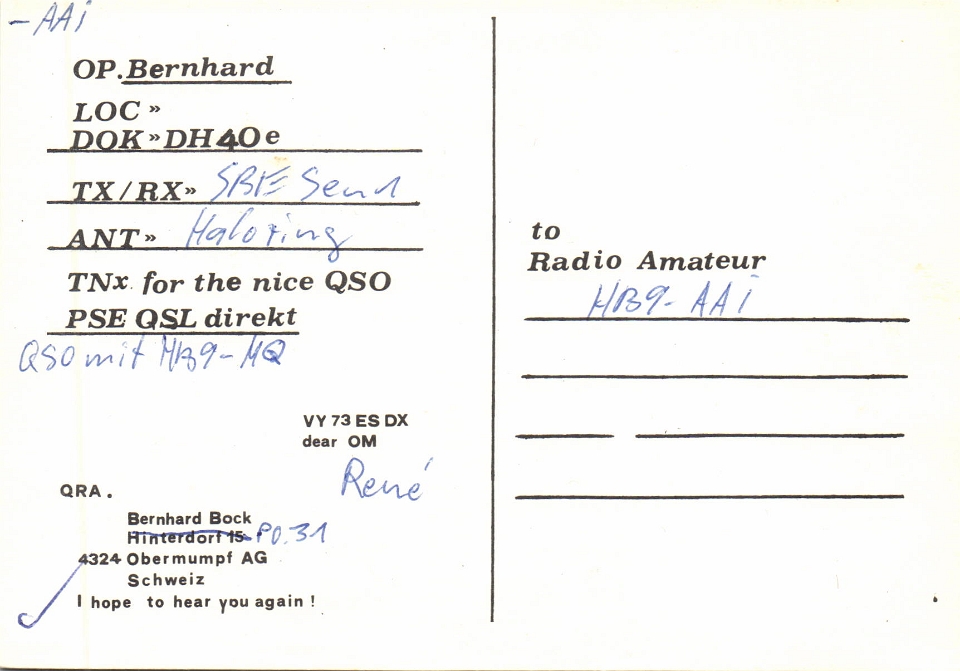 - AAi
OP. Bernhard
LOC »
DOK » DH40e
TX/RX» SBE Send
ANT» Haloring
TNx for the nice QSO
PSE QSL direkt
QSO mit HB9-MQ
VY 73 ES DX
dear OM
René
QRA.
Bernhard Bock
Hinterdorf 15 PO.31
4324 Obermumpf AG
Schweiz
I hope to hear you again !
to
Radio Amateur
HB9-AAi